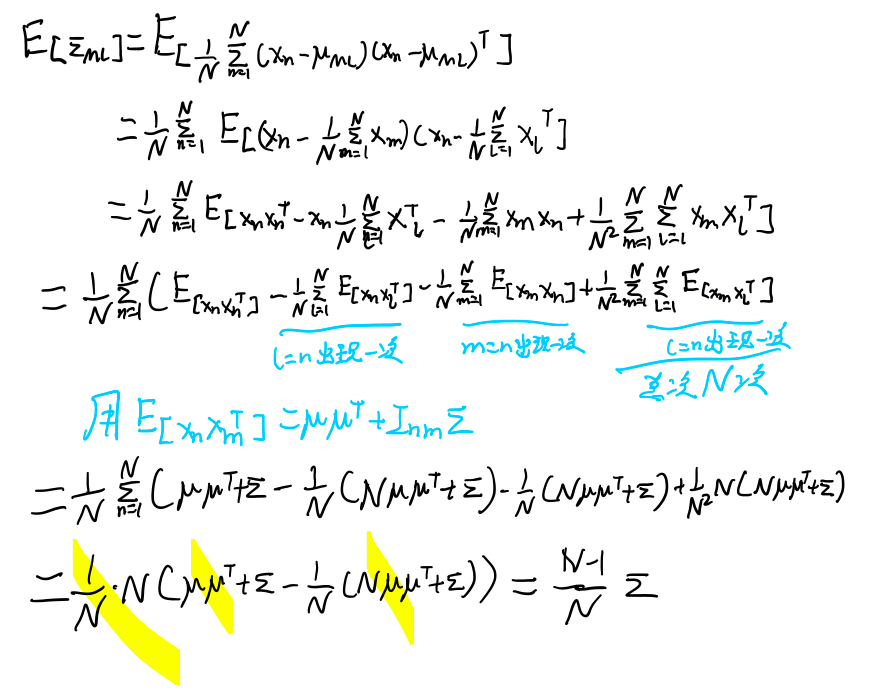 E[Σ_ML] = E[1/N Σ_{n=1}^N (x_n - μ_ML)(x_n - μ_ML)^T]
= 1/N Σ_{n=1}^N E[(x_n - 1/N Σ_{m=1}^N x_m)(x_n - 1/N Σ_{l=1}^N x_l^T]
= 1/N Σ_{n=1}^N E[x_n x_n^T - x_n 1/N Σ_{l=1}^N x_l^T - 1/N Σ_{m=1}^N x_m x_n + 1/N² Σ_{m=1}^N Σ_{l=1}^N x_m x_l^T]
= 1/N Σ_{n=1}^N (E[x_n x_n^T] - 1/N Σ_{l=1}^N E[x_n x_l^T] - 1/N Σ_{m=1}^N E[x_m x_n] + 1/N² Σ_{m=1}^N Σ_{l=1}^N E[x_m x_l^T]
l=n出现一次 m=n出现一次 l=n出现一次
N次
用 E[x_n x_m^T] = μμ^T + I_nm Σ
= 1/N Σ_{n=1}^N (μμ^T + Σ - 1/N (Nμμ^T + Σ) - 1/N (Nμμ^T + Σ) + 1/N² N(Nμμ^T + Σ)
= 1/N · N (μμ^T + Σ - 1/N (Nμμ^T + Σ)) = N-1/N Σ